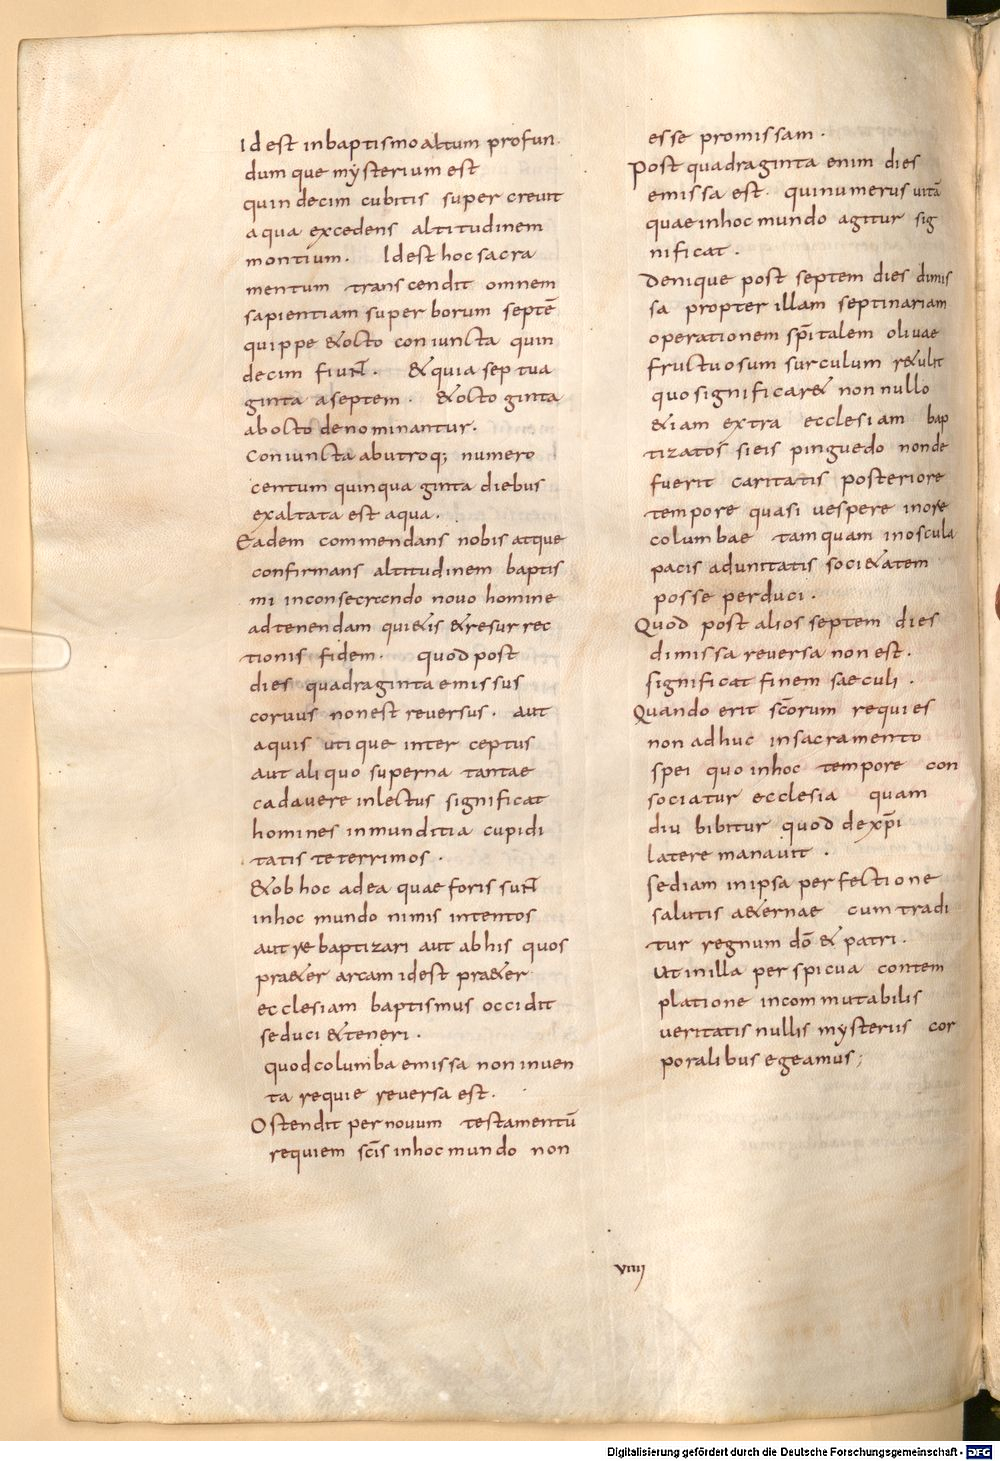 Id est inbaptismo altum profun
dum que mysterium est
quin decim cubitis super creuit
aqua excedens altitudinem
montium. Id est hoc sacra
mentum transcendit omnem
sapientiam super borum septē
quippe & octo coniuncta quin
decim fiunt. & quia sep tua
ginta a septem. & octo ginta
ab octo denominantur.
Coniuncta ab utroq; numero
centum quinqua ginta diebus
exaltata est aqua.
Eadem commendans nobis atque
confirmans altitudinem baptis
mi inconsecrcondo nouo homine
ad tenendam qui&is & resur rec
tionis fidem. quod post
dies quadraginta emissus
coruus non est reuersus. aut
aquis utique inter ceptus
aut aliquo superna tantae
cadauere inlectus significat
homines inmunditia cupidi
tatis teterrimos.
& ob hoc ad ea quae foris sunt
in hoc mundo nimis intentos
aut re baptizari aut ab his quos
pra&er arcam id est pra&er
ecclesiam baptismus occidit
seduci & teneri.
quod columba emissa non inuen
ta requie reuersa est.
Ostendit per nouum testamentū
requiem sc̄is in hoc mundo non
esse promissam.
Post quadraginta enim dies
emissa est. qui numerus uitā
quae in hoc mundo agitur sig
nificat.
Denique post septem dies dimis
sa propter illam septinariam
operationem sp̄italem oliuae
fructuosum surculum r&ulit
quo significar& non nullo
&iam extra ecclesiam bap
tizatos si eis pinguedo non de
fuerit caritatis posteriore
tempore quasi uespere in ore
columbae tamquam in oscula
pacis ad unitatis soci&atem
posse perduci.
Quod post alios septem dies
dimissa reuersa non est.
significat finem saeculi.
Quando erit sc̄orum requies
non adhuc in sacramento
spei quo in hoc tempore con
sociatur ecclesia quam
diu bibitur quod de xp̄i
latere manauit.
sed iam in ipsa perfectione
salutis a&ernae cum tradi
tur regnum dō & patri.
Ut in illa perspicua contem
platione incommutabilis
ueritatis nullis mysteriis cor
poralibus egeamus;
viiii
Digitalisierung gefördert durch die Deutsche Forschungsgemeinschaft - DFG